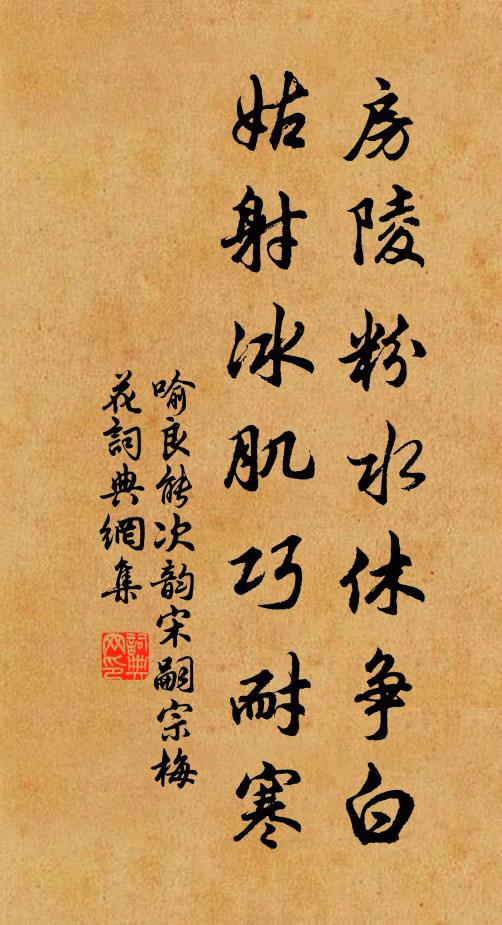 房陵粉水休争白
姑射冰肌巧耐寒
喻良能次韵宋嗣宗梅
花詞典網集
詞典網印